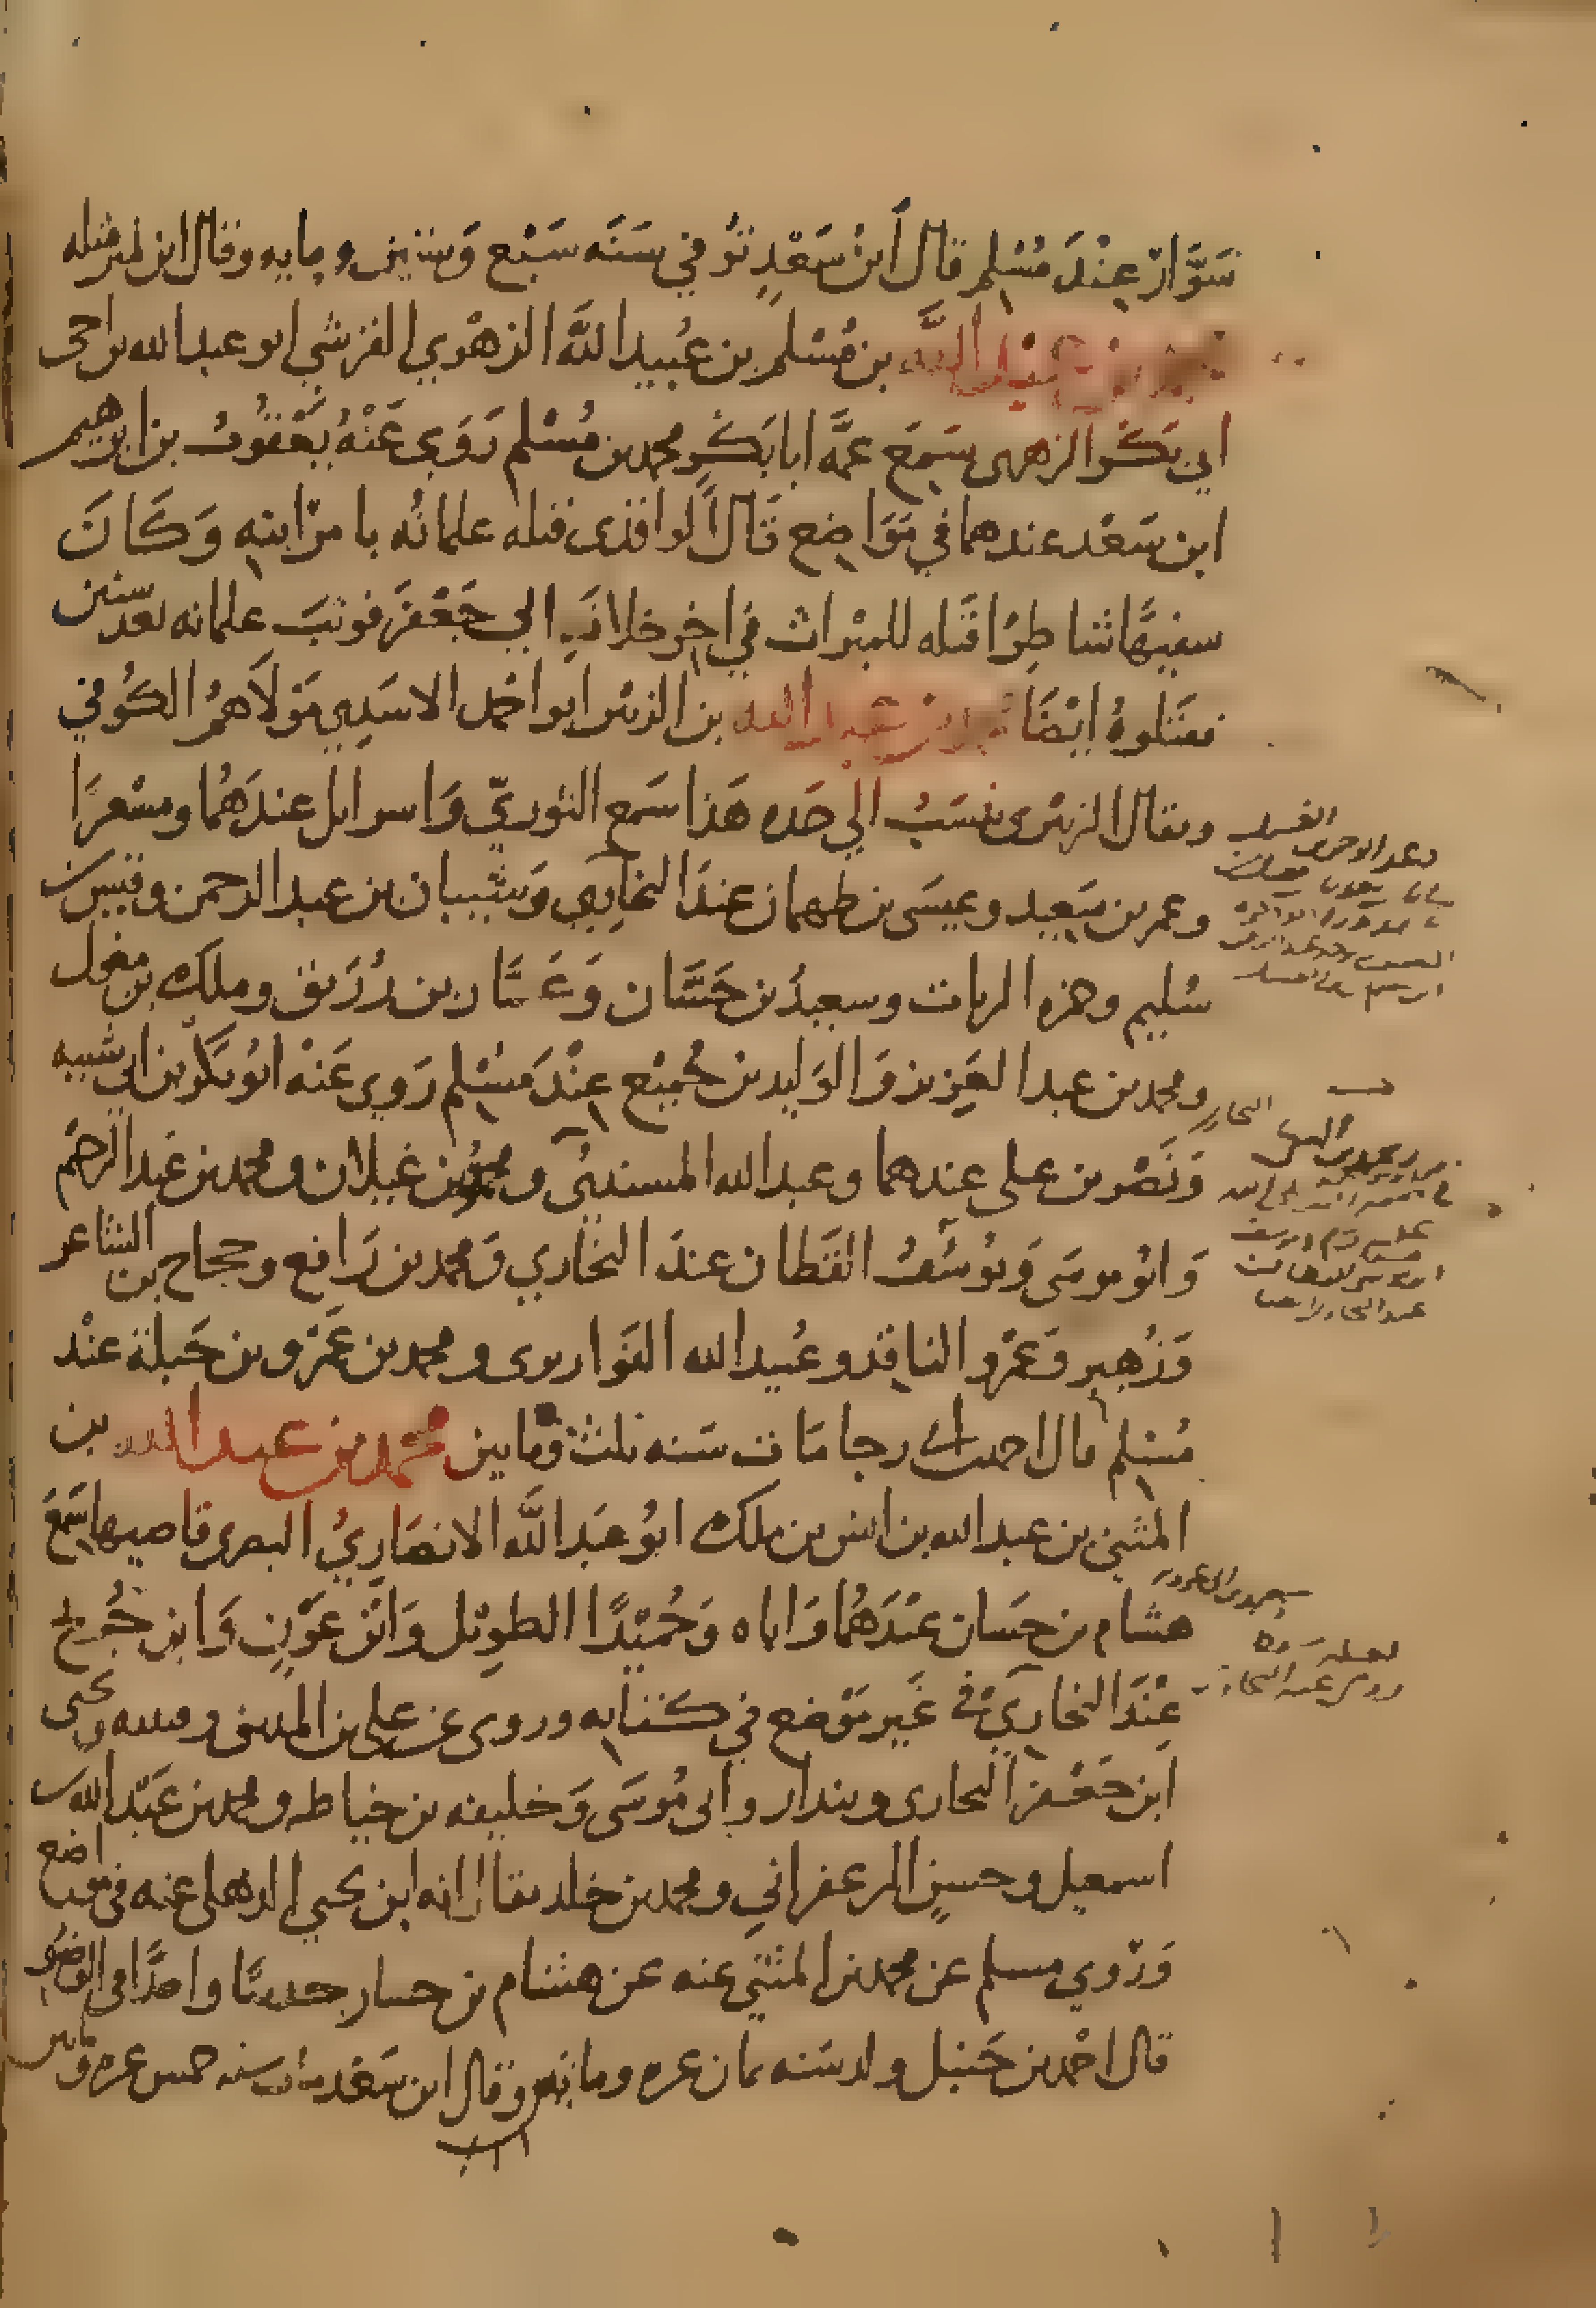 سَوَّار عِنْدَ مُسْلِم قال اَبنُ سَعْدٍ تُوفي سَنَه سَبْع وَستين ومايه وقال ابن نمير مثله
محمد بن عبد الله بن مُسْلم بن عُبيد اللَّه الزهْري القرشي ابو عبد الله بن اخي
ابي بَكر الزهرى سَمِعَ عمَّه ابا بَكرٍ محمد بن مُسْلم رَوَي عَنْهُ يَعْقوُب بن ابرهيم
ابن سَعْد عندهما في مَوَاضع قَالَ الواقدى قتله غلمانُه با مرِ ابنه وَكَانَ
سفيهًا شاطِرًا قتَله للميْراث في اخِر خلافَه ابي جَعْفَر فوثبَ غلمانه بعد سنين
فقتَلوهُ ايْضًا محمد بن عبد الله بن الزبيْر ابو احْمد الاسَدِي مَوْلاَهمُ الكوُفي
ويقال الزبيْرى نُسَبُ الي جَده هَذا سَمع الثوريّ وَاسرايل عندَهُما ومسْعرًا
وعمر بن سَعِيد وعيسَى بن طهمان عندَ البخَارِي وَشيبان بن عبد الرحمن وقيس بن
سُليم وحمزه الزيات وسعيدُ بن حَسَّان وَعَمَّار بن رُزَيق وملك بن مغول
ومحمد بن عبد العَزِيز وَالوَليد بن جُميْع عِنْدَ مسْلِم رَوي عَنْه ابُو بَكْر بن ابي شيبه
وَنَصْر بن على عندهما وعبد الله المسنديُ ومحمود بن غيلان ومحمد بن عَبد الرحَم
وَابُو موسَى وَيوُسُفُ القَطان عندَ البخاري وَمحمد بن رَافع وحجاج بن الشاعر
وَزُهير وَعَمْرو الناقد وعُبيد الله القوَاريرى ومحمد بن عَمْرو بن جَبلة عنْد
مُسْلم قال احمد بن ابي رجا مَات سَنه ثلث وماتين محمد بن عبد الله بن
المثني بن عبد الله بن انس بن ملك ابوُ عَبد اللَّه الانصَاريُ البصرى قاضيها سَمِعَ
هشام بن حَسَان عنْدَهُما وَاباه وَحُمَيْدًا الطويْل وَابْنَ عَوْنٍ وَابن جُريج
عِنْدَ البخاريّ في غَير مَوْضع في كتابه وروى عن علي بن المديني وقتيبه ويحيى
ابن جَعْفر البخارى وبندار وابى مُوسَى وَخليفه بن خياط ومحمد بن عَبْد الله بن
اسمعيل وحسين الزعفرانيِ ومحمد بن خلد يقال انه ابن يحيي الذهلى عنه في مواضع
وَرَوي مسلم عن محمد بن المثني عنه عن هشام بن حسان حديثا واحدًا في الوضوُ
قال احْمد بن حَنبل ولد سَنه ثمان عشره ومائه وقال ابن سَعْد مات سنه خمس عشره وماتين